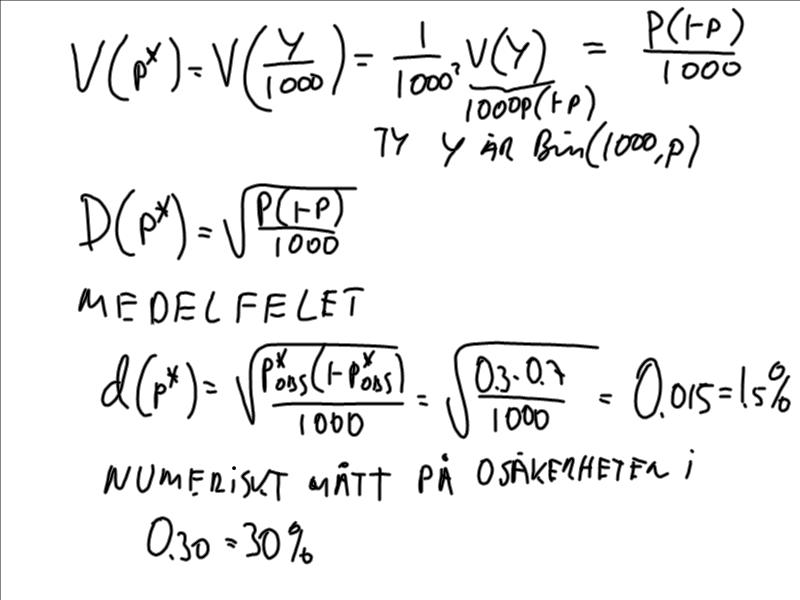 V(p*) = V(Y/1000) = 1/1000² · V(Y) = p(1-p)/1000
1000p(1-p)
TY Y ÄR Bin(1000, p)
D(p*) = √(p(1-p)/1000)
MEDELFELET
d(p*) = √(p*OBS(1-p*OBS)/1000) = √(0.3·0.7/1000) = 0.015 = 1.5%
NUMERISKT MÅTT PÅ OSÄKERHETEN i
0.30 = 30%